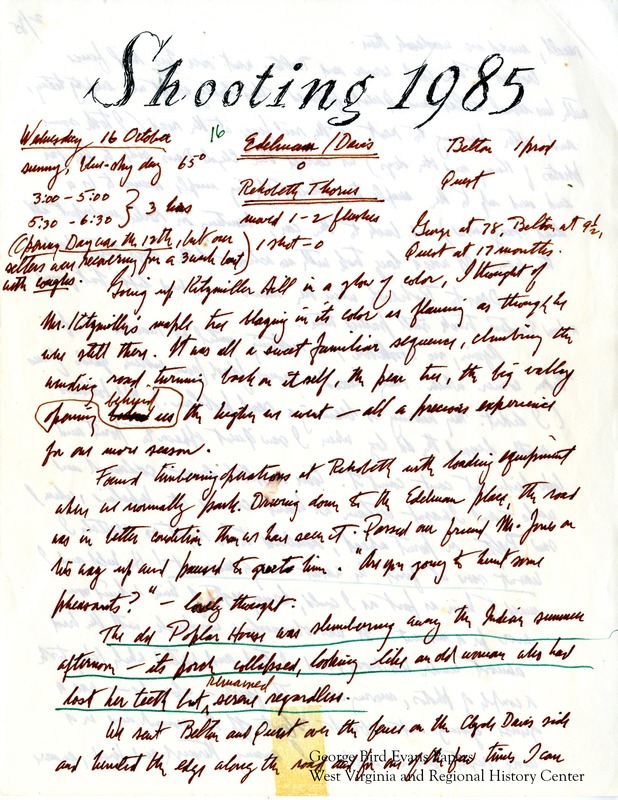 Shooting 1985
Wednesday 16 October 16 Edelman / Davis Belton 1 prod
sunny, blue-sky day 65° 0 Quest
3:00 - 5:00 } 3 hrs Rehobeth Thorns
5:30 - 6:30 moved 1-2 flushes George at 78, Belton at 9½,
(Opening Day was the 12th, but our 1 shot - 0 Quest at 17 months.
setters was recovering for a 3 week bout)
with coughs. Going up Kitzmiller Hill in a glow of color, I thought of
Mr. Kitzmiller's maple tree blazing in its color as flaming as though he
was still there. It was all a sweet familiar sequence, climbing the
winding road turning back on itself, the pear tree, the big valley
opening behind us the higher we went — all a precious experience
for one more season.
Found timbering operations at Rehobeth with loading equipment
where we normally park. Driving down to the Edelman place, the road
was in better condition than we have seen it. Passed our friend Mr. Jones on
his way up and paused to greet him. "Are you going to hunt some
pheasants?" — lovely thought.
The old Poplar House was slumbering away the Indian summer
afternoon — its porch collapsed, looking like an old woman who had
lost her teeth but remained serene regardless.
We sent Belton and Quest over the fence on the Clyde Davis side
and hunted the edge along the road and for one of the few times I can
George Bird Evans Papers
West Virginia and Regional History Center